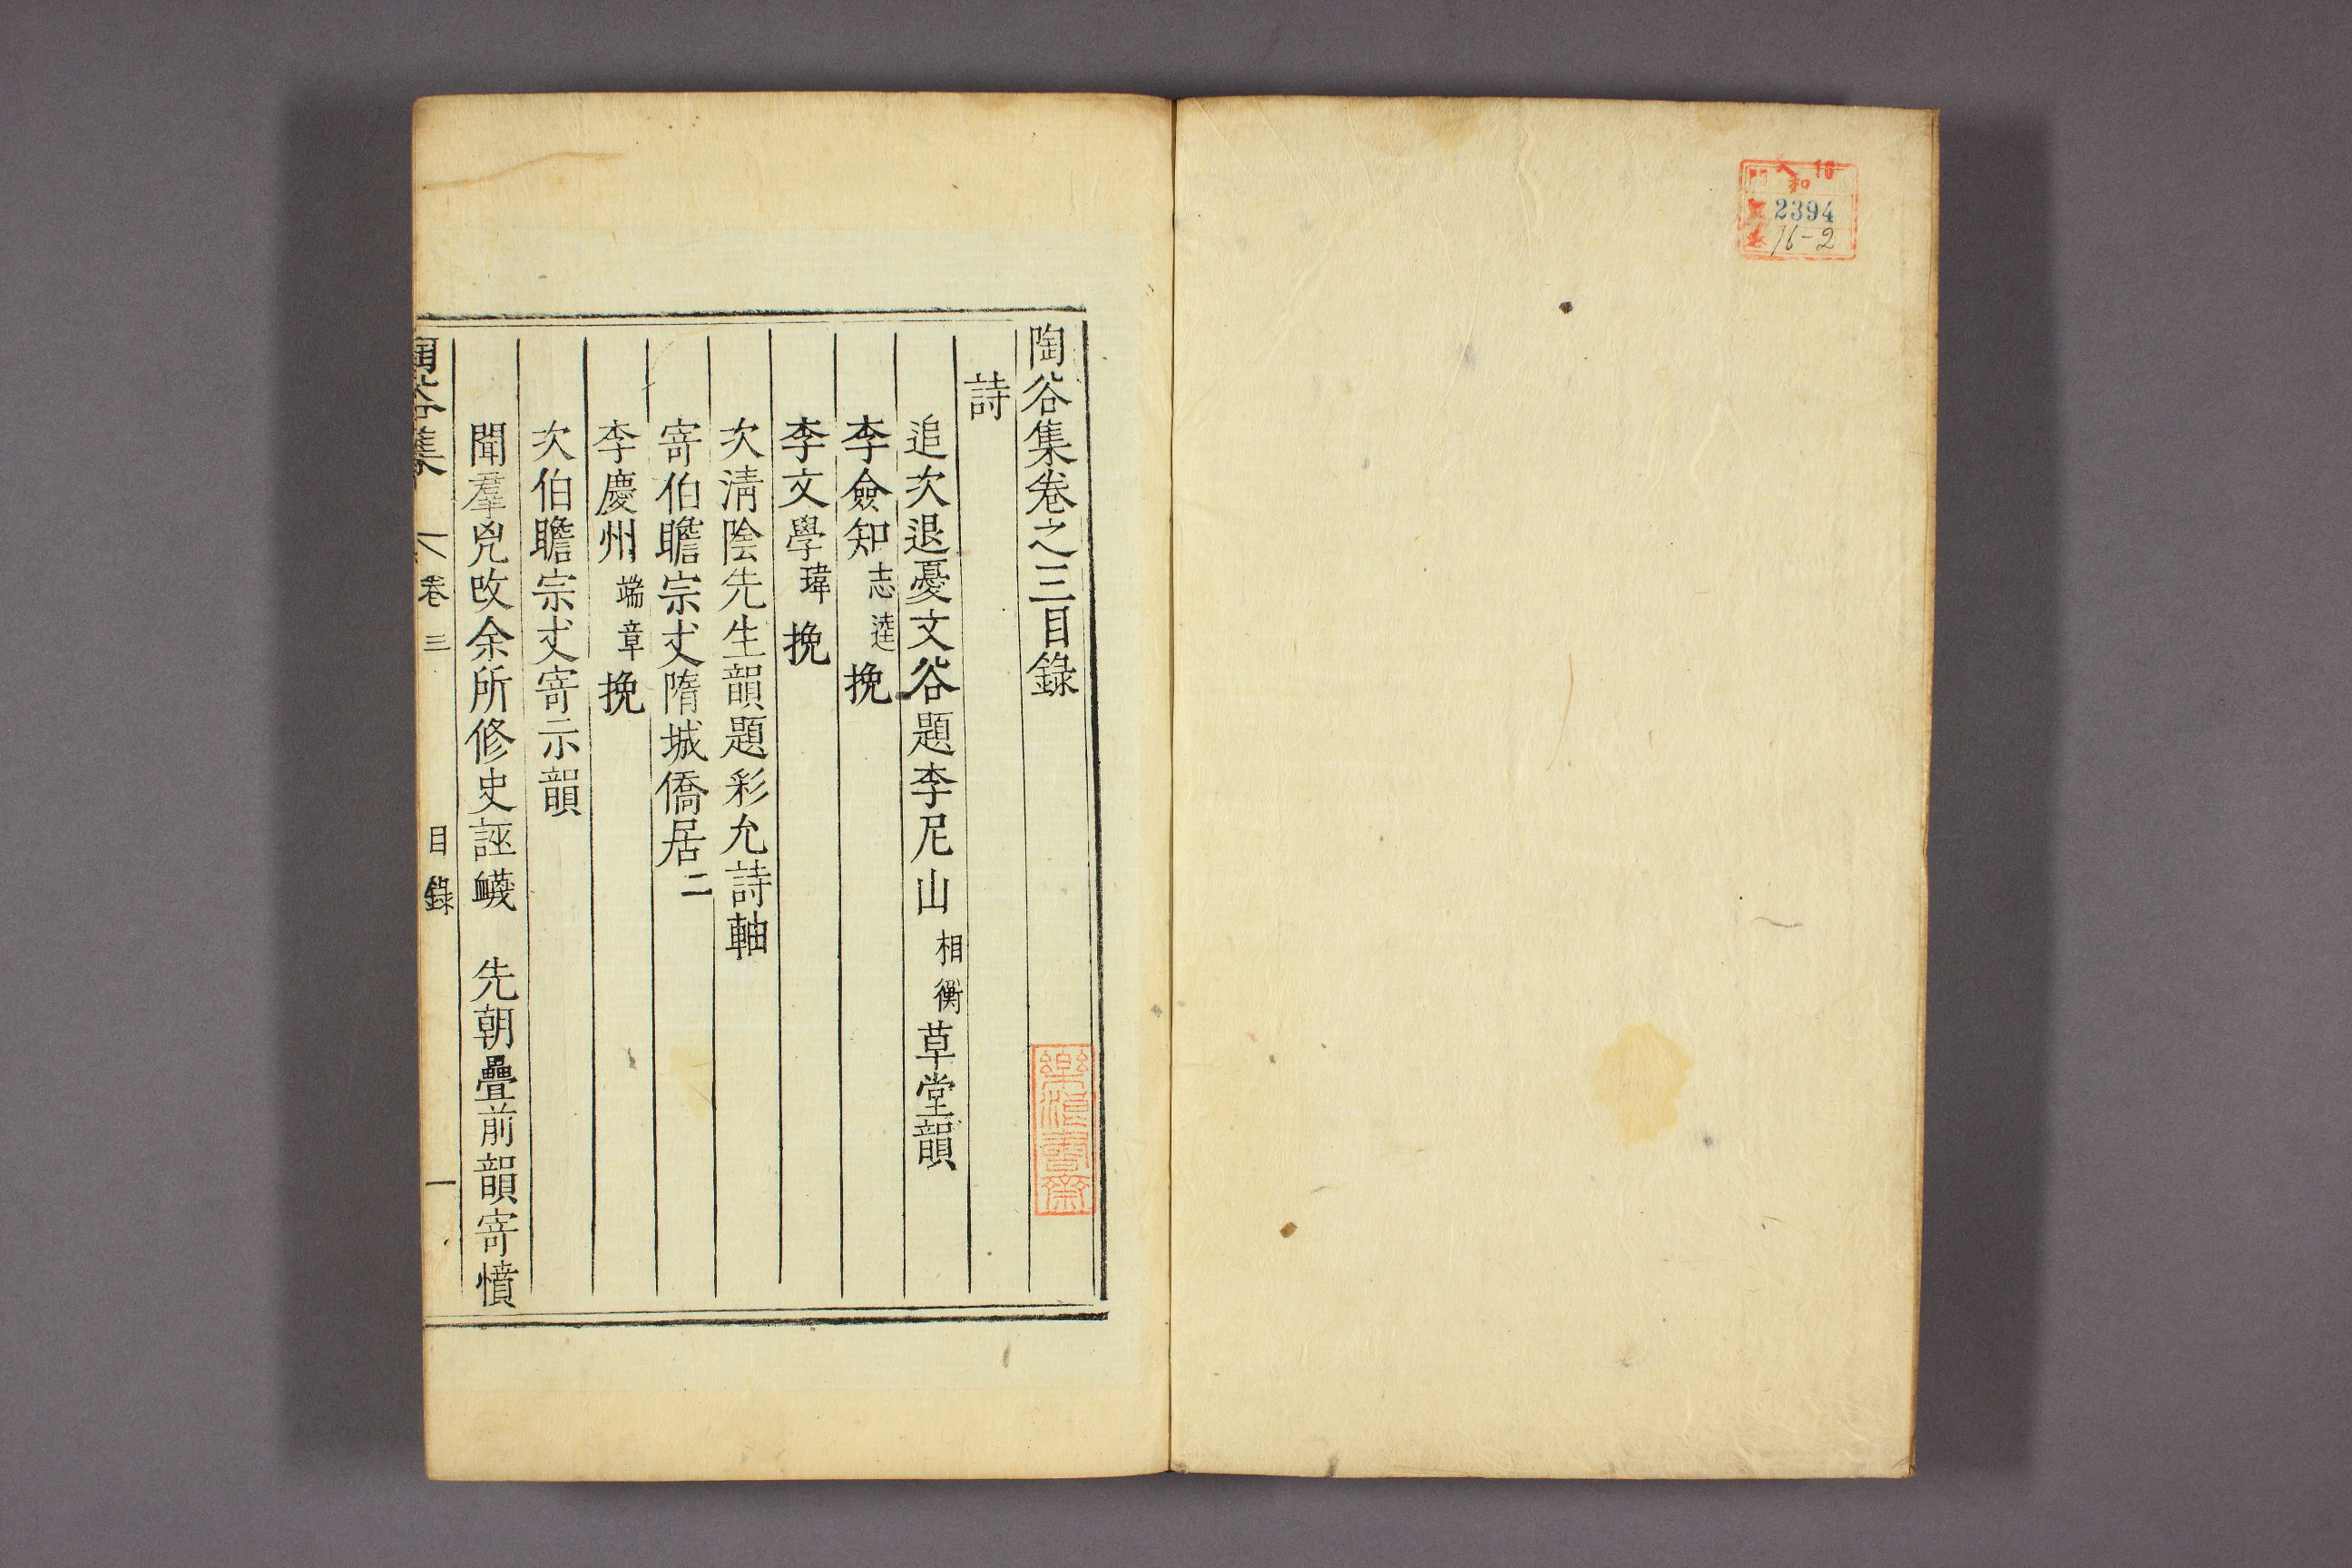 和
16
2394
16-2
陶谷集卷之三目錄
詩
追次退憂文谷題李尼山相衡草堂韻
李僉知志逵挽
李文學瑋挽
次淸陰先生韻題彩允詩軸
寄伯瞻宗丈隋城僑居二
李慶州端章挽
次伯瞻宗丈寄示韻
聞羣兇改余所修史誣衊 先朝疊前韻寄憤
陶谷集 卷三 目錄 一